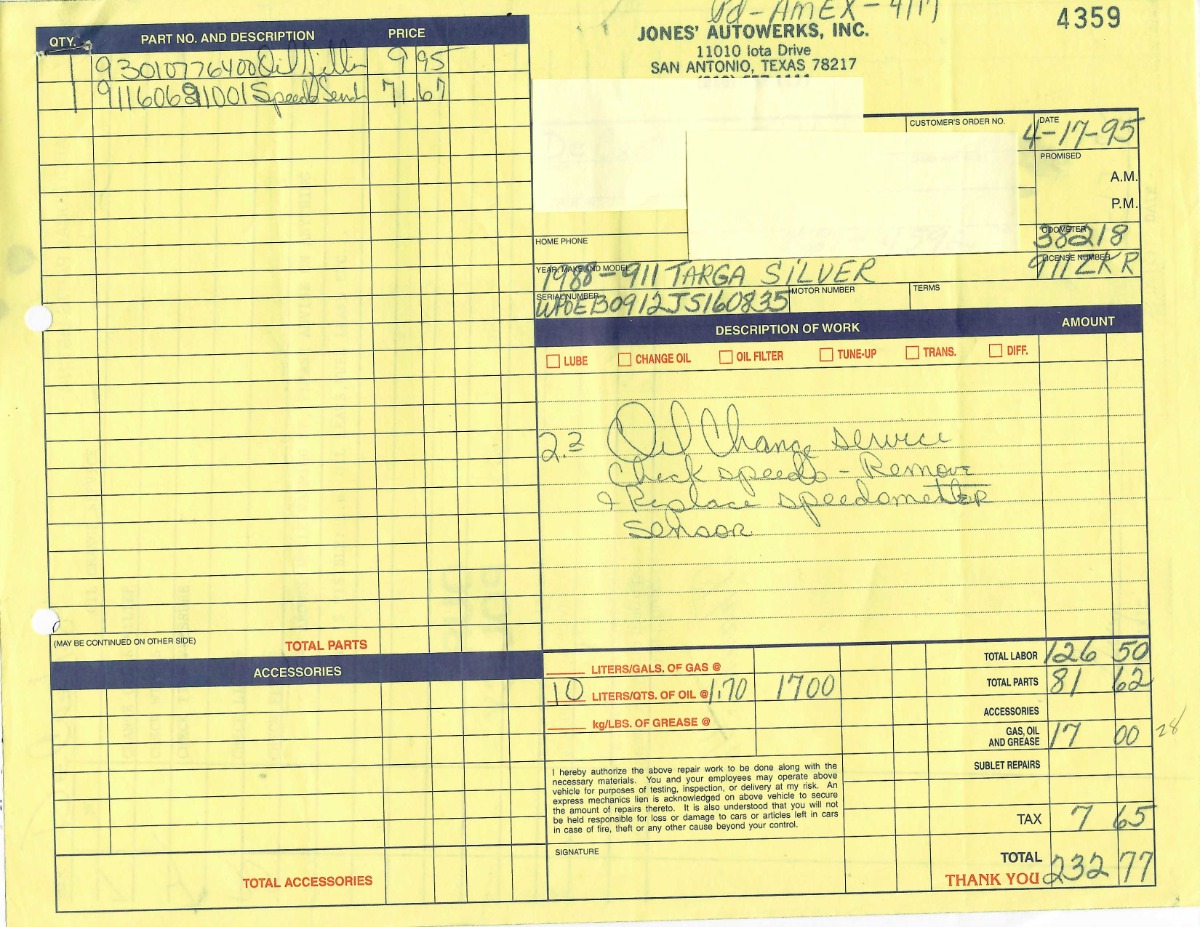 Pd-AMEX-4117
4359
JONES' AUTOWERKS, INC.
11010 Iota Drive
SAN ANTONIO, TEXAS 78217
QTY. PART NO. AND DESCRIPTION PRICE
1 93010776400 Oil Filter 9 95
1 91160621001 Speedo Sendr 71.67
CUSTOMER'S ORDER NO.
DATE 4-17-95
PROMISED
A.M.
P.M.
HOME PHONE
ODOMETER 38218
YEAR, MAKE AND MODEL 1988-911 TARGA SILVER
LICENSE NUMBER 911ZKR
SERIAL NUMBER WP0EB0912JS160835
MOTOR NUMBER
TERMS
DESCRIPTION OF WORK AMOUNT
LUBE CHANGE OIL OIL FILTER TUNE-UP TRANS. DIFF.
2.2 Oil Change service
Check speedo - Remove
& Replace speedometer
sensor
(MAY BE CONTINUED ON OTHER SIDE) TOTAL PARTS
ACCESSORIES
TOTAL ACCESSORIES
LITERS/GALS. OF GAS @
10 LITERS/QTS. OF OIL @ 1.70 1700
kg/LBS. OF GREASE @
I hereby authorize the above repair work to be done along with the
necessary materials. You and your employees may operate above
vehicle for purposes of testing, inspection, or delivery at my risk. An
express mechanics lien is acknowledged on above vehicle to secure
the amount of repairs thereto. It is also understood that you will not
be held responsible for loss or damage to cars or articles left in cars
in case of fire, theft or any other cause beyond your control.
SIGNATURE
TOTAL LABOR 126 50
TOTAL PARTS 81 62
ACCESSORIES
GAS, OIL
AND GREASE 17 00 28
SUBLET REPAIRS
TAX 7 65
TOTAL 232 77
THANK YOU